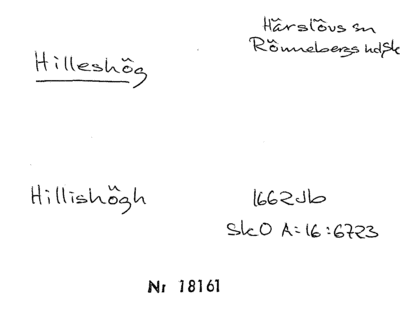 Härslövs sn
Hilleshög
Rönnebergs hd, Sk
Hillishögh
1662 Jb
SkO A:16:6723
Nr 18161